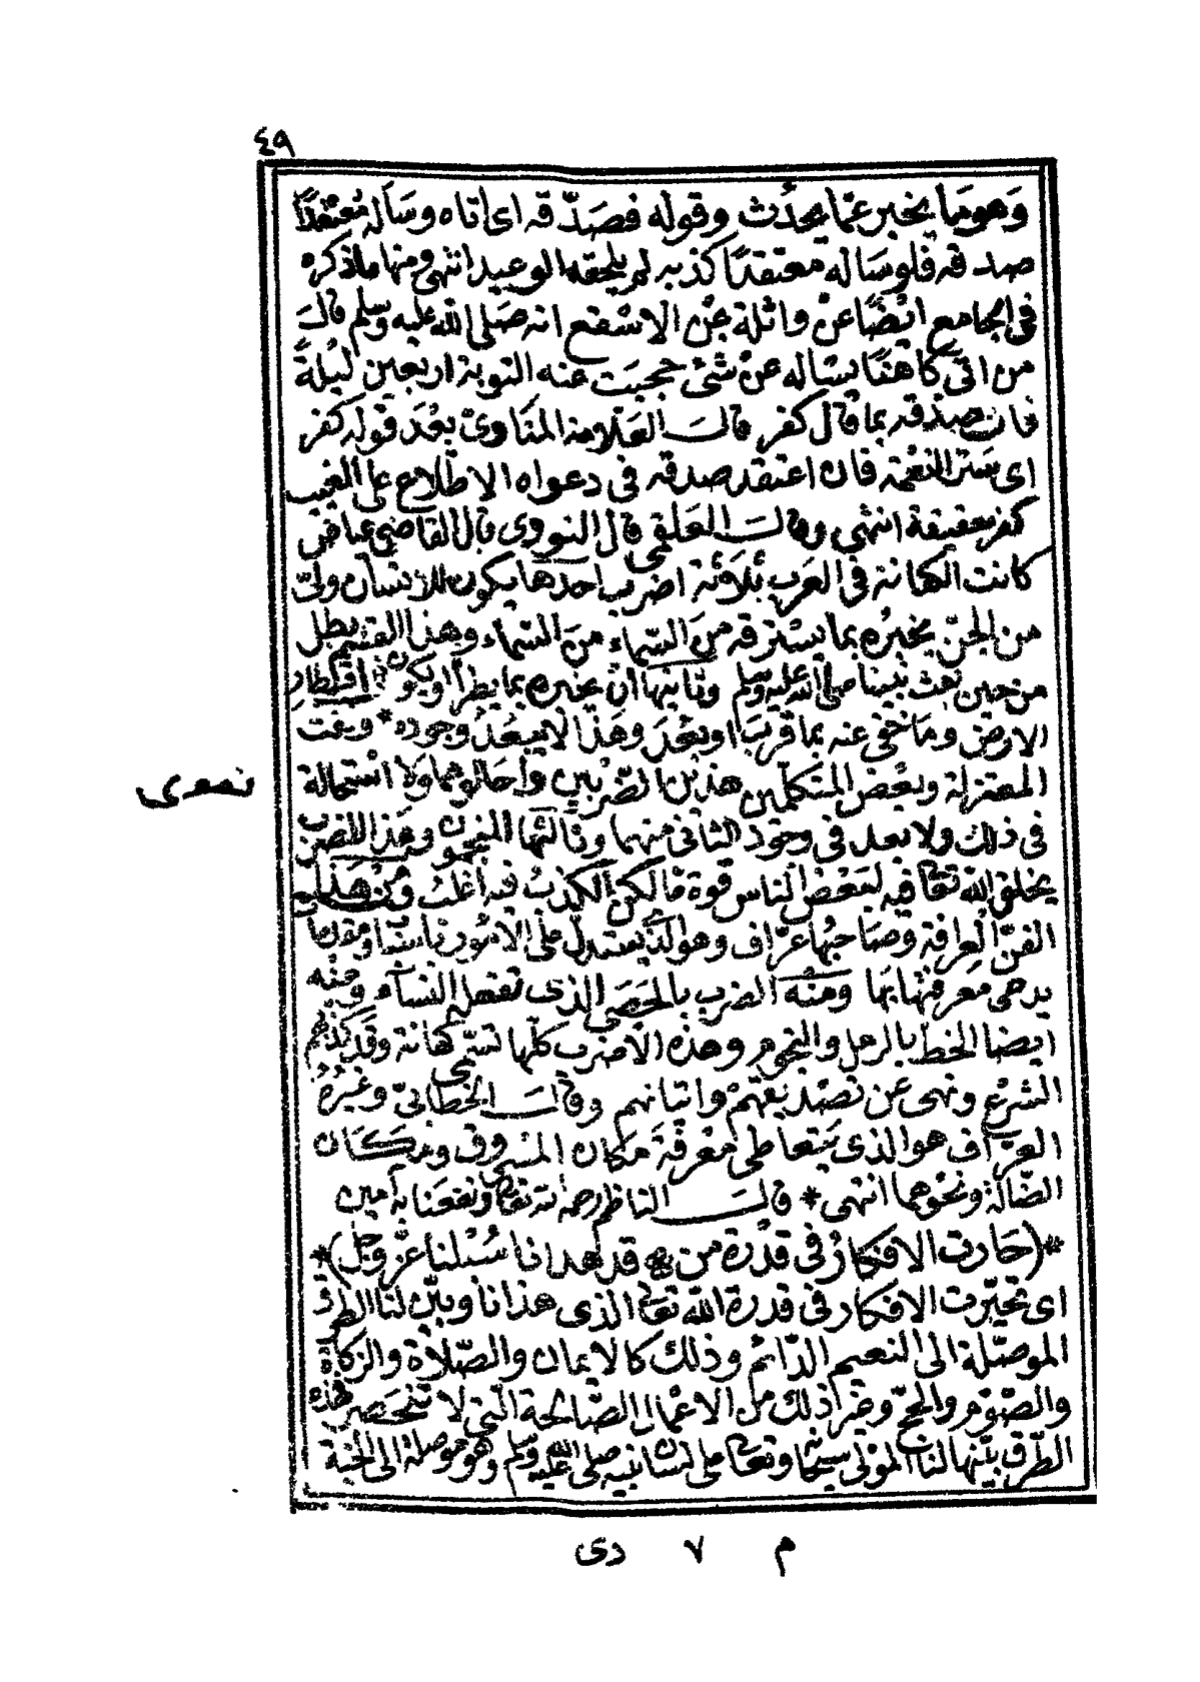 ٤٩
وَهومَا يخبر عمّا يحدُث وقوله فصَدّ قه اى اتاه وسَأله معتقدًا
صد قه فلو سَاله معتقدًا كذبه لم يلحقه الوعيد انتهى ومنها ماذكره
فى الجامع ايْضًا عن واثلة بن الاسْقع انه صَلى الله عليه وسلم قالَ
من اتى كاهنًا يسَاله عن شئ حجبت عنه التوبة اربعين ليلةً
فان صدقه بما قال كفر قالـــ العَلامة المنَاوىّ بعْدَ قوله كفر
اى سَتر النعْمة فان اعتقد صدقه فى دعواه الاطّلاع على الغيب
كفر حقيقة انتهى وقالـــ العَلقمى قال النووى قال القاضى عياض
كانت الكهانة فى العرب ثلاثة اضرب احدها يكون للانسَان ولىّ
من الجنّ يخبرُه بما يسْترقه منَ السّماء وهذا القسْم بطل
من حين بعث نبينا صلى الله عليه وسلم وثانيها ان يخبره بما يطرأ او يكون فى اقطار
الارض وما خفى عنه بما قربَ او بعُدَ وهَذا لا يبعُدُ وجوده * ونفت
المعتزلة وبعْض المتكلّمين هذين الضربين واحالوهما ولا استحالة
فى ذلك ولا بعد فى وجُود الثانى منهما وثالثها المنجّمون وهذا الضرب
يخلق الله تعالى فيه لبَعْض الناس قوة مّا لكن الكذبُ فيه اغلبُ ومن هذا
الفنّ العرافة وصَاحبُها عرّاف وهو الذى يستدلّ على الامُور باسبَاب ومقدمات
يدعى معرفتها بها ومنْه الضرب بالحَصَى الذى تفعله النسَاء ومنْه
ايضا الخط بالرمل والنجوم وهذه الاضرب كلّها تسَمّى كهانة وقد كذبهم
الشرع ونهى عن تصْديقهمْ واتيانهم وقالـــ الخطابىّ وغيْرهُ
العرّاف هو الذى يتعاطى معْرفَة مكان المسْروق ومَكان
الضّالة ونحوهما انتهى * قالـــ الناظم رحمه الله تعالى ونفعَنا به آمين
*(حَارت الافكارُ فى قدْرة من ۞ قد هدانا سُبْلنا عزّ وجلّ)*
اى تحيّرت الافكار فى قدرة الله تعالى الذى هدانا وبيّن لنا الطرق
الموصّلة الى النعيم الدّائم وذلك كالايمان والصّلاة والزكاة
والصّوْم والحجّ وغير ذلك من الاعْمال الصّالحة التى لا تنحَصر فهذه
الطّرق بيّنها لنا المولى سبحانه وتعالى على لسَان نبيه صلى الله عليه وسلم وهو موصلة الى الجنة
م ٧ دى